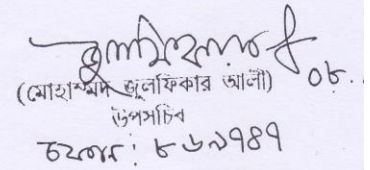 ০৮..
(মোহাম্মদ জুলফিকার আলী)
উপসচিব
ফোন: ৮৬১৭৪৭